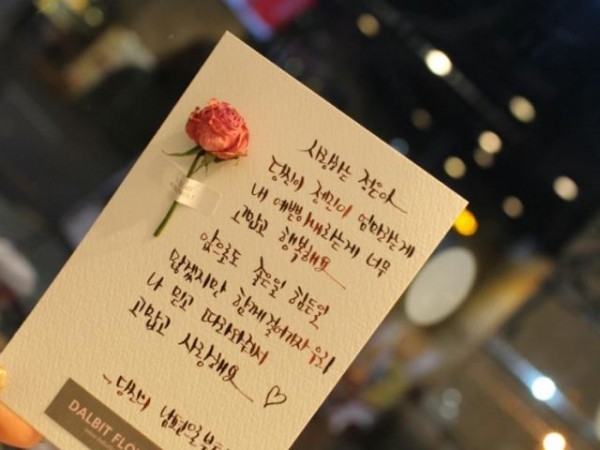 사랑하는 정은아
당신이 정민이 엄마라는게
내 예쁜아내라는게 너무
고맙고 행복해요
앞으로도 좋은일 힘든일
많겠지만 함께걸어가자우리
나 믿고 따라와줘서
고맙고 사랑해요
~당신의 남편으로부터
DALBIT FLO